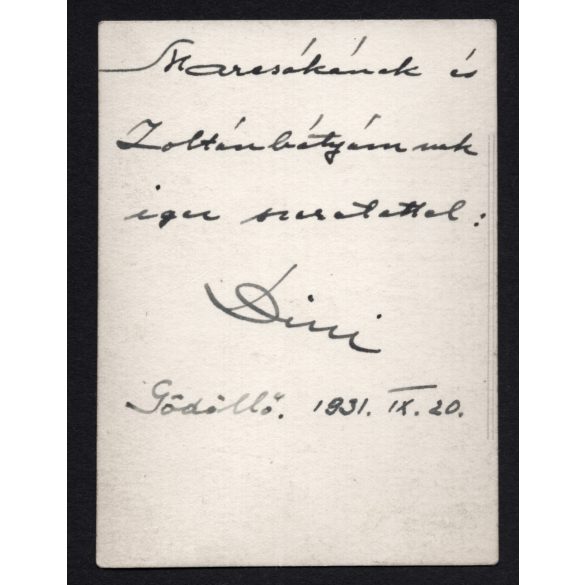 Marcsókának és
Zoltánbátyámnak
igen szeretettel:
Dini
Gödöllő. 1931. IX. 20.